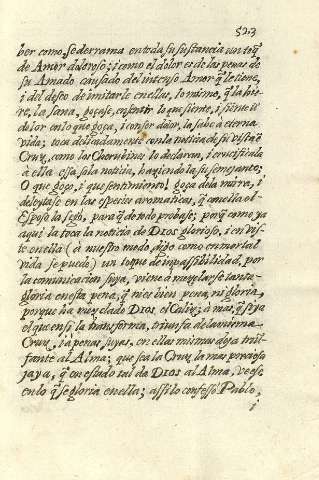 523
ber como, se derrama en toda su sustancia un toq̃
de Amor doloroso; i como el dolor es de las penas de
su Amado, causado del intenso Amor q̃ le tiene,
i del deseo de imitarle en ellas, lo mismo, q̃ la hie-
re, la sana, goçase, en sentir lo que siente, i siente el
dolor en lo que goça, i con ser dolor, la sabe à eterna
vida; toca delicadamente con la noticia de su vista en
Cruz, como los Cherubines lo declaran, i crucificala
à ella essa sola noticia, haçiendola su semejante;
O que goço, i que sentimiento! goça de la mirra, i
deleytase en las especies aromaticas, q̃ con ella el
Esposo la sego, para q̃ de todo probase; porq̃ como ya
aqui la toca la noticia de Dios glorioso, i en vis-
te en ella (à nuestro modo digo como en mortal
vida se puede) un toque de impassibilidad, por
la comunicacion suya, viene à mezclarse tanta
gloria en esta pena, q̃ ni es bien pena, ni gloria,
porque ha mezclado Dios el Caliz; à mas, q̃ si ya
el que en si la transforma, triumfa de la misma
Cruz, i à penas suyas, en ellas mismas deja triũ-
fante al Alma; que sea la Cruz la mas preciosa
jaya, q̃ en estado tal da Dios al Alma, veese
en lo q̃ se gloria en ella; assi lo confessò Pablo,
i